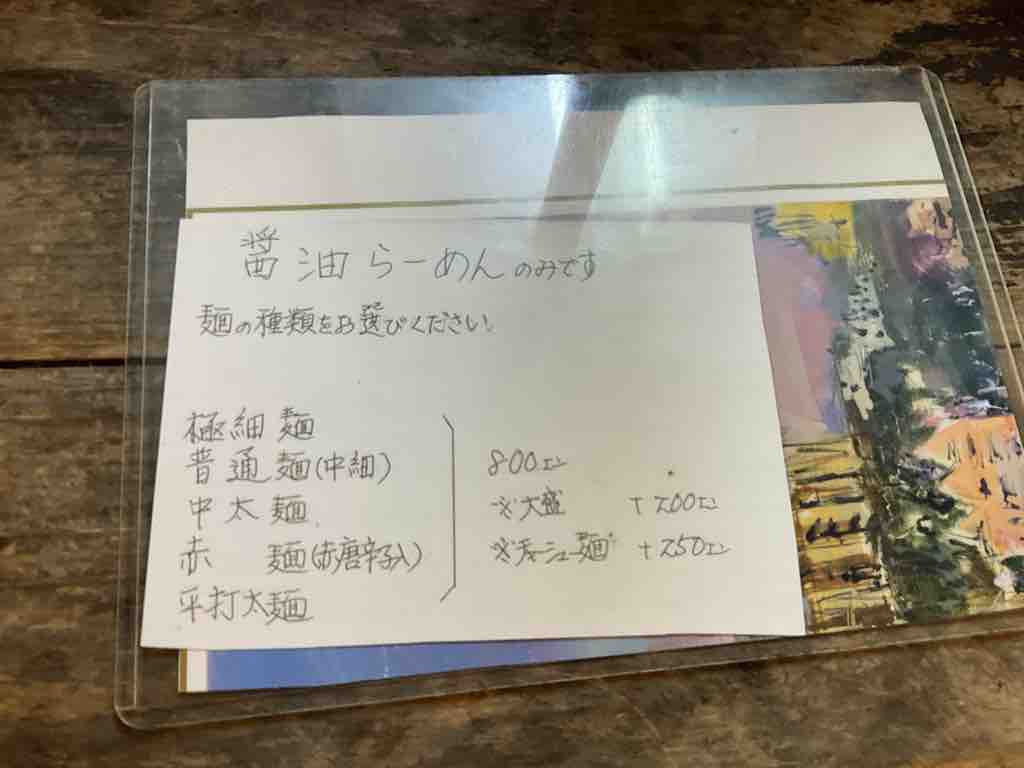 醤油らーめんのみです
麺の種類をお選びください。
極細麺
普通麺(中細)
中太麺
赤 麺(赤唐辛子入)
平打太麺
800エン
※大盛 +200エン
※チャーシュー麺 +250エン